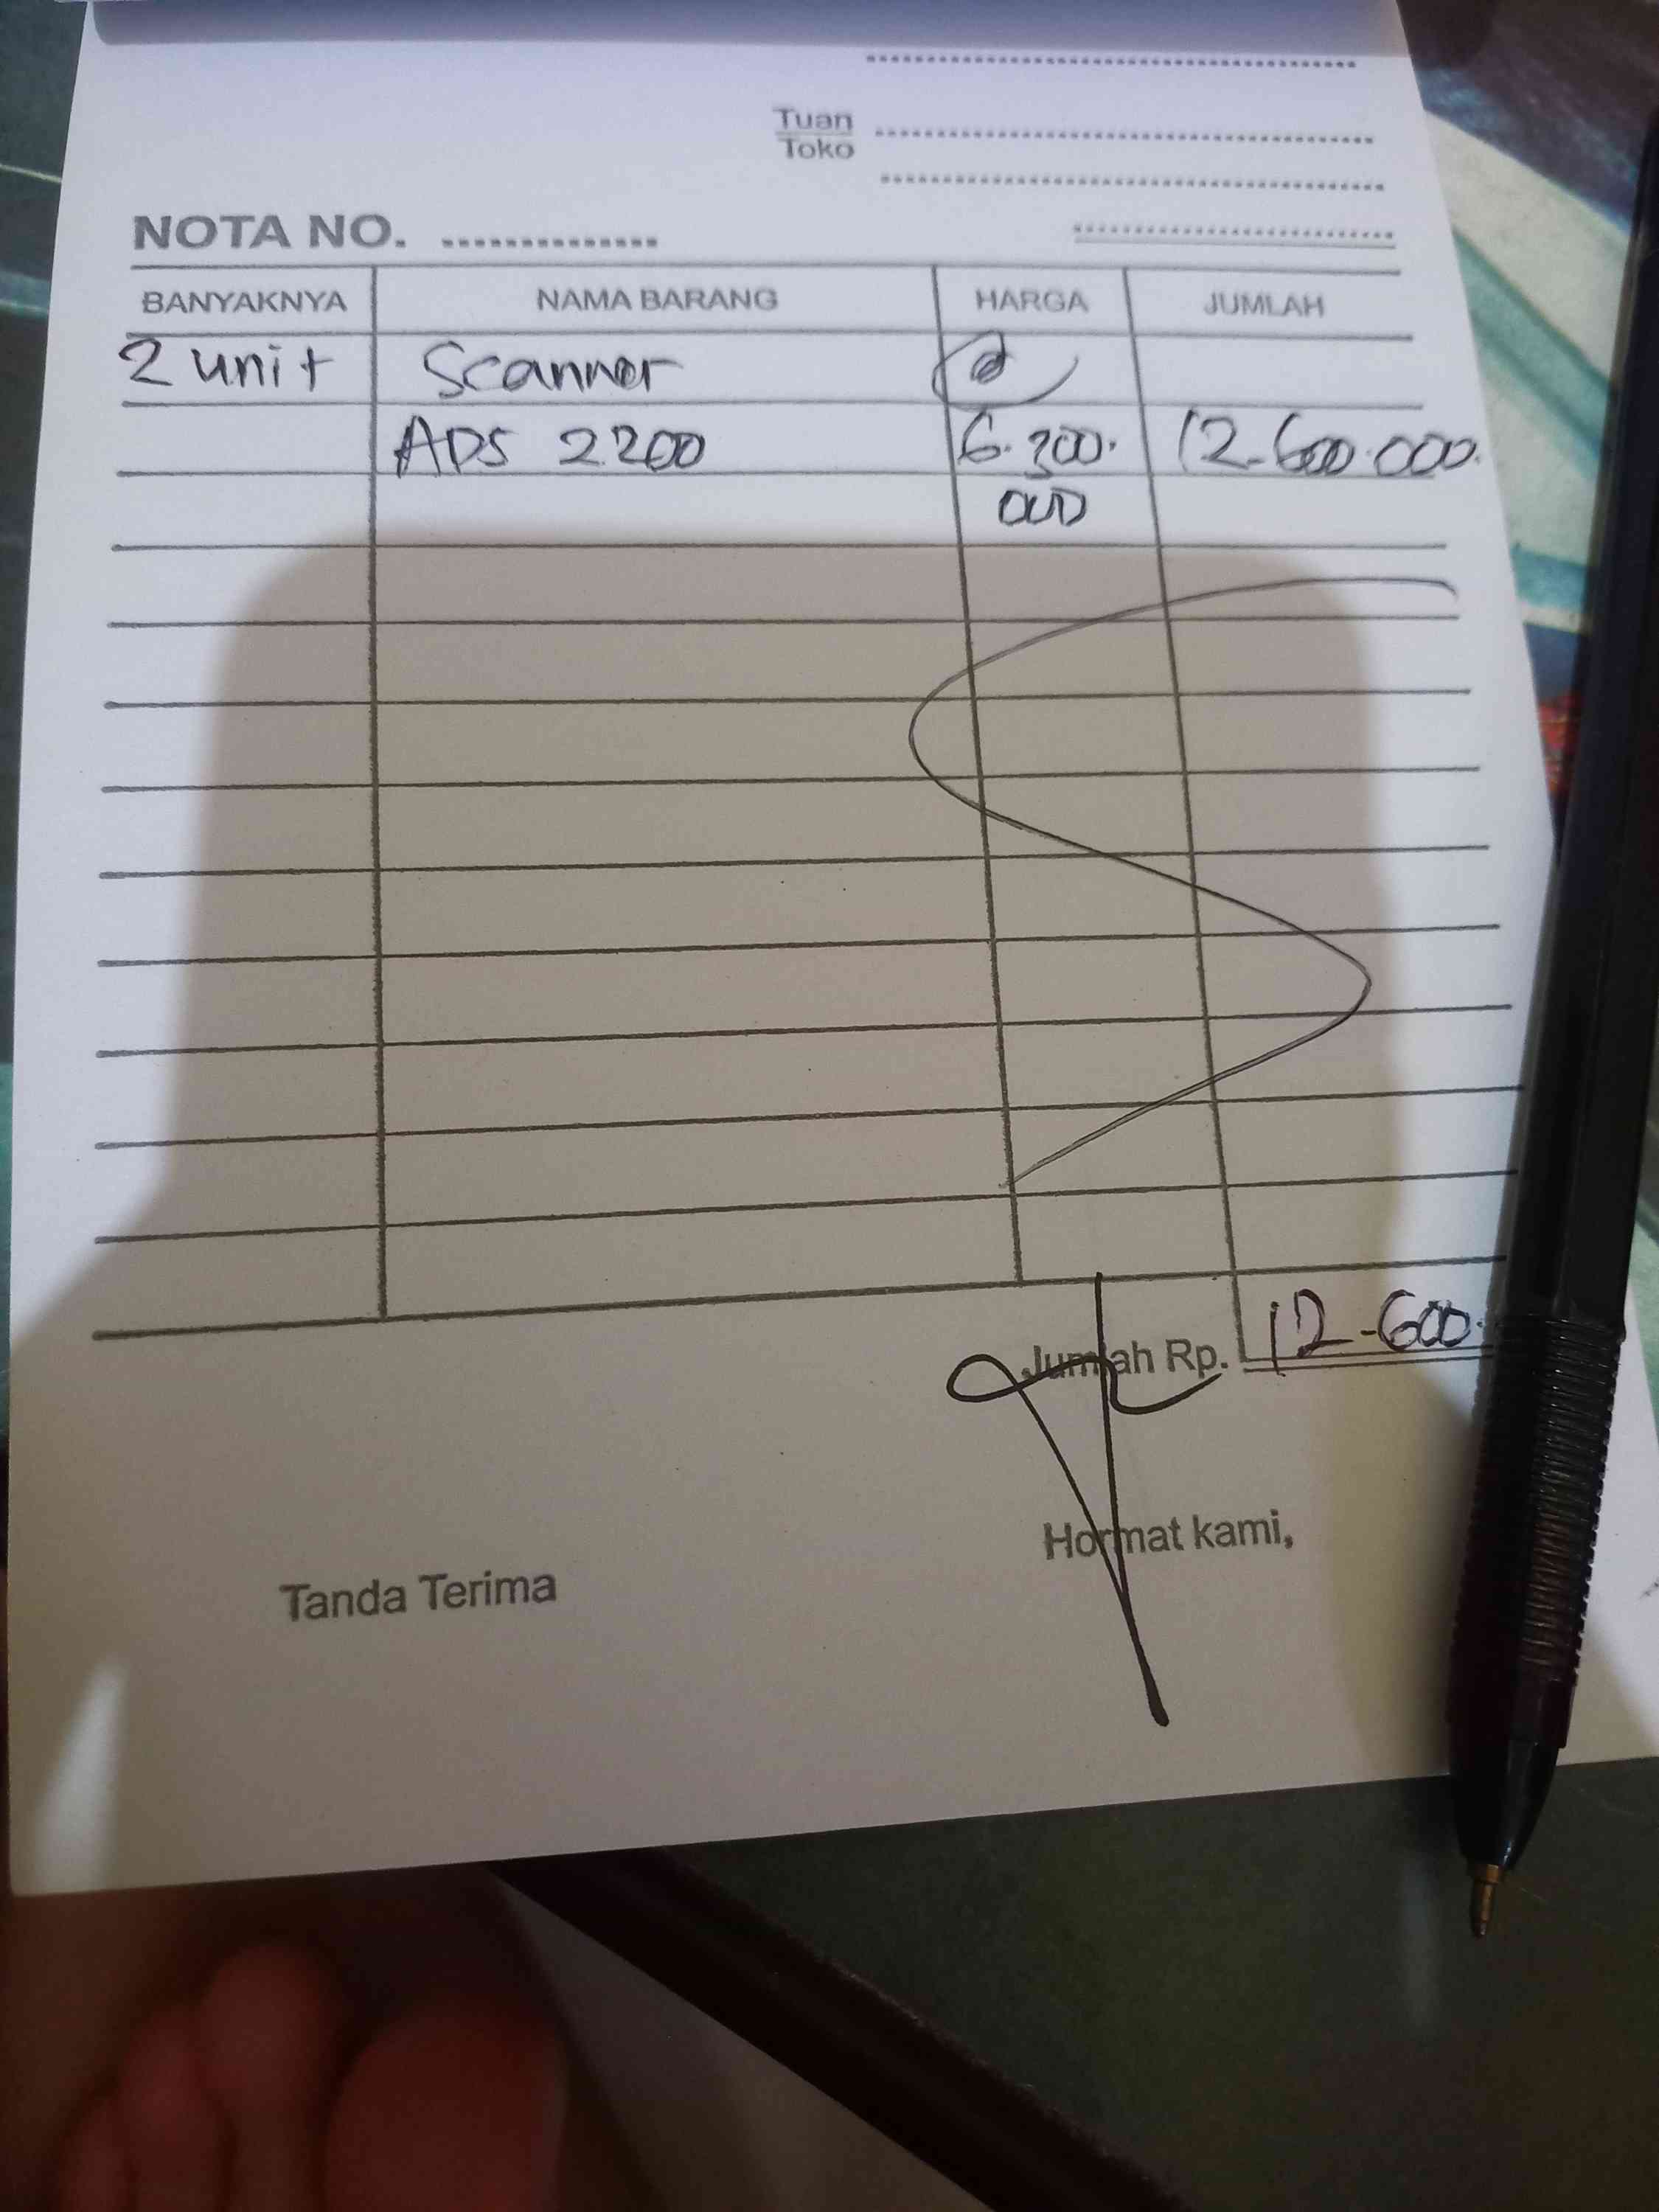 Tuan
Toko
NOTA NO.
BANYAKNYA NAMA BARANG HARGA JUMLAH
2 unit Scanner @
ADS 2200 6.300. 12.600.000.
000
Jumlah Rp. 12.600.
Hormat kami,
Tanda Terima